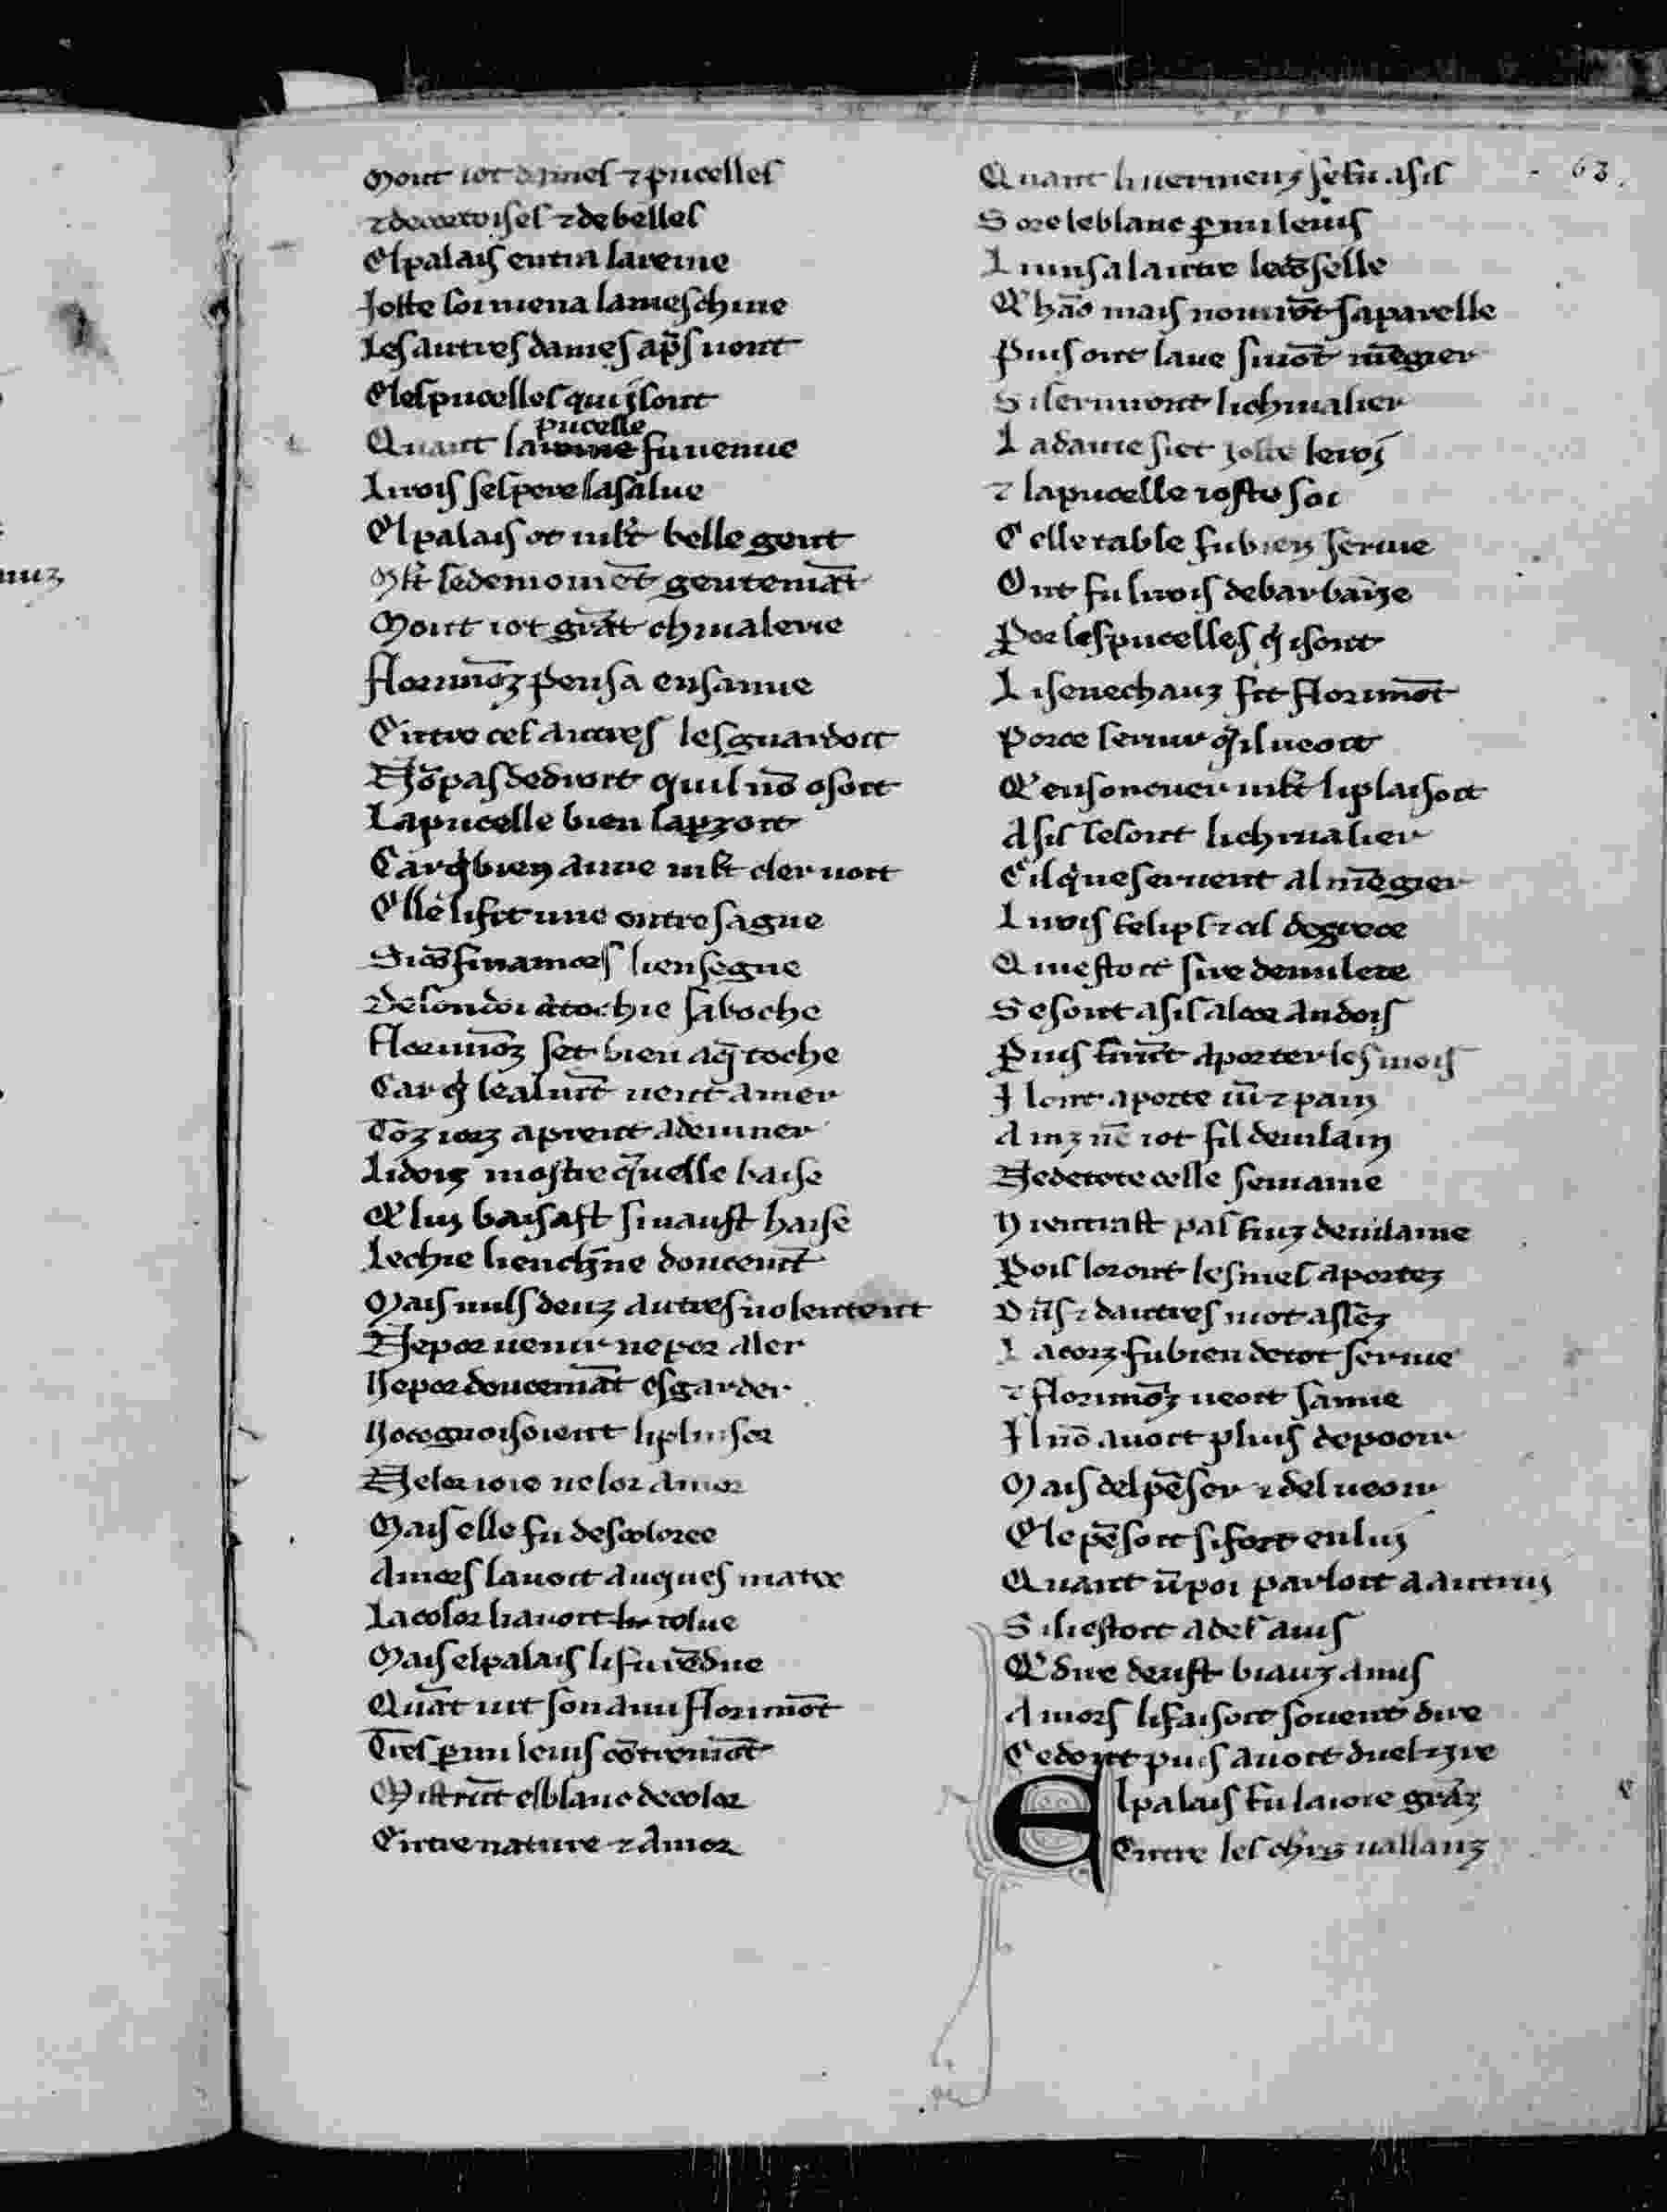 Mont iot dames ⁊ pucelles
⁊ decortoises ⁊ de belles
El palais entra la reine
Joste soi mena la meschine
Les autres dames ap̃s uont
E les pucelles qui i sont
pucelle
Quant la roine fu uenue
Li rois ses pere la salue
El palais ot mlt belle gent
Mlt se demoinẽt gentemãt
Mont iot grãt chiualerie
Florimõz pensa ensamie
Entre ces autres lesguardoit
Nõ pas dedroit quil nõ osoit
La pucelle bien laꝑzoit
Car q̇ bien aime mlt cler uoit
Elle li fit une entresague
Si cõ finamors li ensegne
De son doi atochie sa boche
Florimõz set bien a q̃ toche
Car q̇ lealmt̃ uent amer
Toz iorz aprent adeuiner
Li doiz mostre q̃uelle baise
E luj baisast si naust haise
Lechie li enchĩne doucemt̃
Mais nuls deuz autres no lentent
Ne por uenir ne por aler
Ne por doucemãt esgarder
No cognoisoient li plusor
Ne lor ioie ne lor amor
Mais elle fu descoloree
Amors lauoit auques matee
La color li auoit tolue
Mais el palais li fu rẽdue
Quãt uit son ami florimõt
Tres ꝑmi le uis cõtremõt
Mistrẽt el blanc de color
Entre nature ⁊ amor
63.
Quant li uermeuz se fu asis
Sore le blanc ꝑmi le uis
Puis ont laue si uõt mẽgier
Si seruiront li chiualier
La dame siet joste le roi
⁊ la pucelle ioste soi
Celle table fu bien seruie
Ont fu li rois de barbarize
Por les pucelles q̇ i sont
Li senechauz fit florimõt
Por ce seruir q̃ il ueoit
E ensoneuer mlt li plaisoit
Asis se sont li chiualier
Cil q̇ ne seruent al mẽgier
Li rois felips ⁊ cil de grece
Qui estoit sire de nulece
Se sont asis alcor andois
Puis firẽt aporter les mois
Il ont aporte uĩ ⁊ pain
Ainz nẽ iot fil de uilain
Ne de tote celle semaine
N i entrast pas fiuz de uilaine
Pois lor ont les mes aportez
Dũs ⁊ dautres mot assez
La corz fu bien de tot seruie
⁊ florimõz ueoit samie
Il nõ auoit pluis de pooir
Mais del pẽser ⁊ del ueoir
E le pẽsoit si fort en luj
Quant ũ poi parloit a autruj
Si li estoit a des auis
E dire deust biauz amis
Amors li faisoit souent dire
Ce dont puis auoit duel ⁊ ire
El palais fu la ioie grãz
Entre les chĩrs uallanz